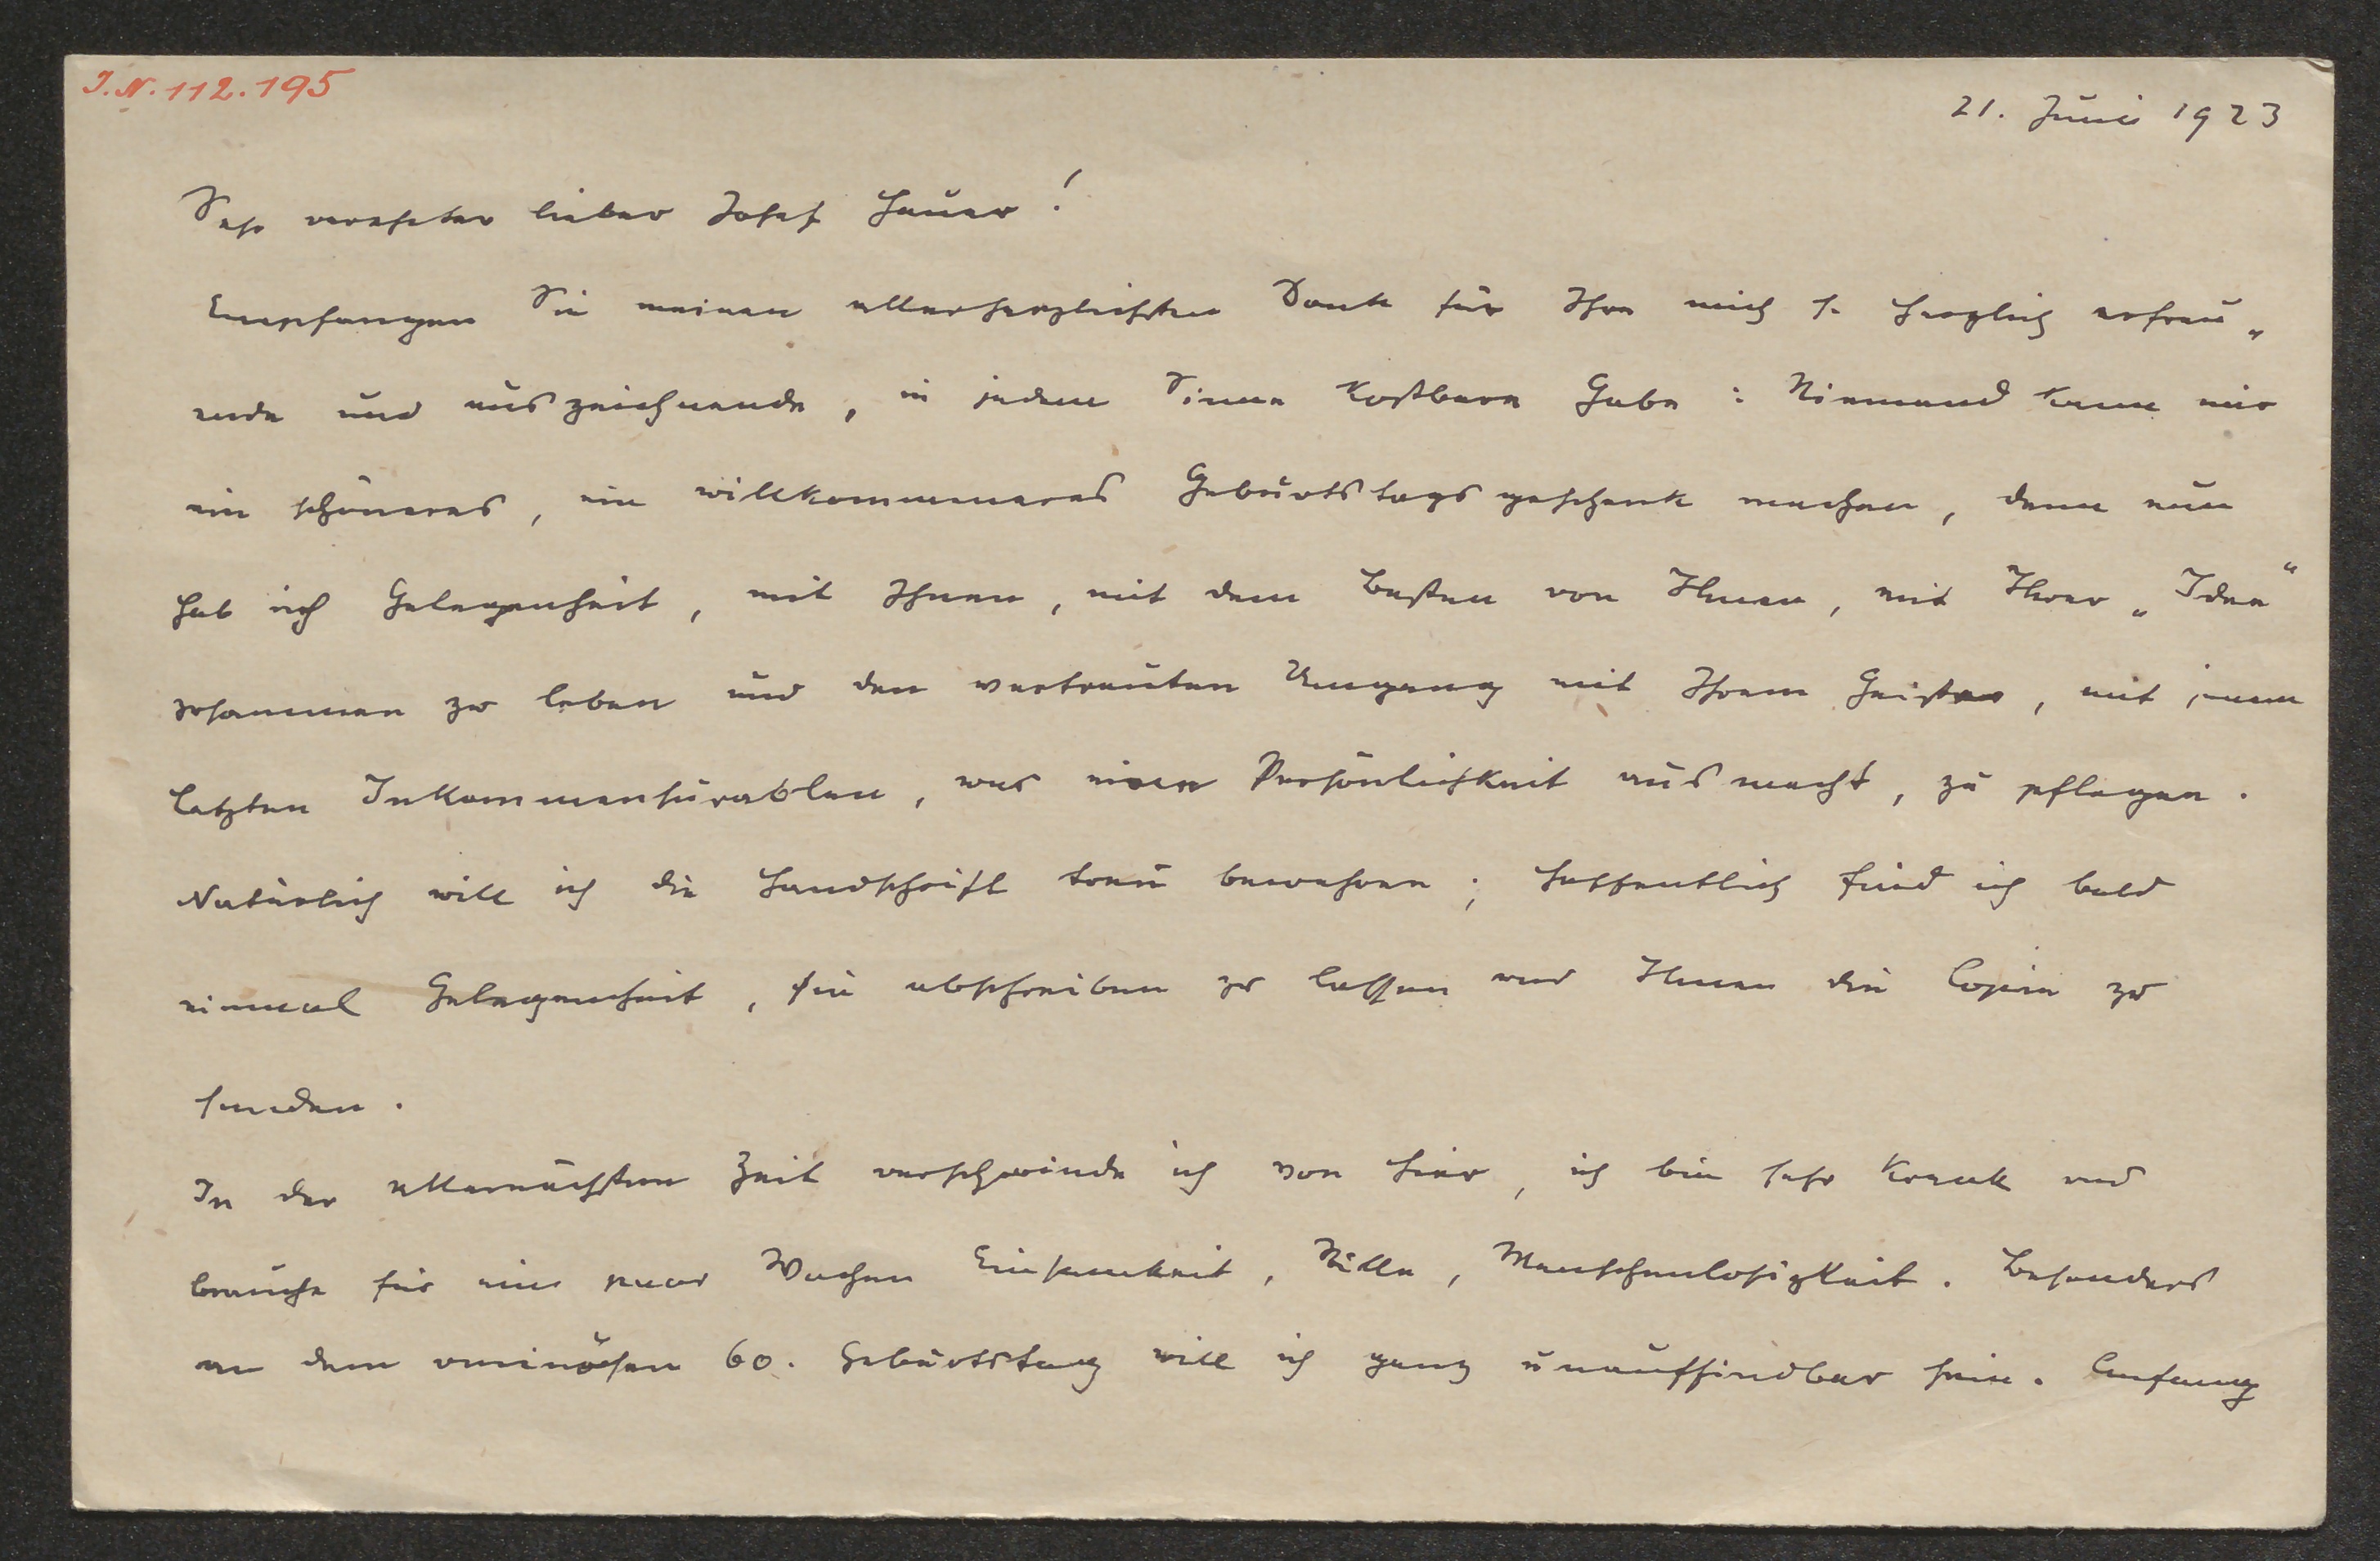 I.N. 112.195
21. Juni 1923
Sehr verehrter lieber Josef Hauer!
Empfangen Sie meinen allerherzlichsten Dank für Ihre mich so herzlich erfreu„
ende und auszeichnende, in jedem Sinne kostbare Gabe: Niemand kann mir
ein schöneres, ein willkommneres Geburtstagsgeschenk machen, denn nun
hab ich Gelegenheit, mit Ihnen, mit dem Besten von Ihnen, mit Ihrer „Idee“
zusammen zu leben und den vertrauten Umgang mit Ihrem Geiste, mit jenem
letzten Inkommensurablen, was eine Persönlichkeit ausmacht, zu pflegen.
Natürlich will ich die Handschrift treu bewahren; hoffentlich find ich bald
einmal Gelegenheit, sie abschreiben zu lassen und Ihnen die Copie zu
senden.
In der allernächsten Zeit verschwinde ich von hier, ich bin sehr krank und
brauche für ein paar Wochen Einsamkeit, Stille, Menschenlosigkeit. Besonders
an dem ominösen 60. Geburtstag will ich ganz unauffindbar sein. Anfang